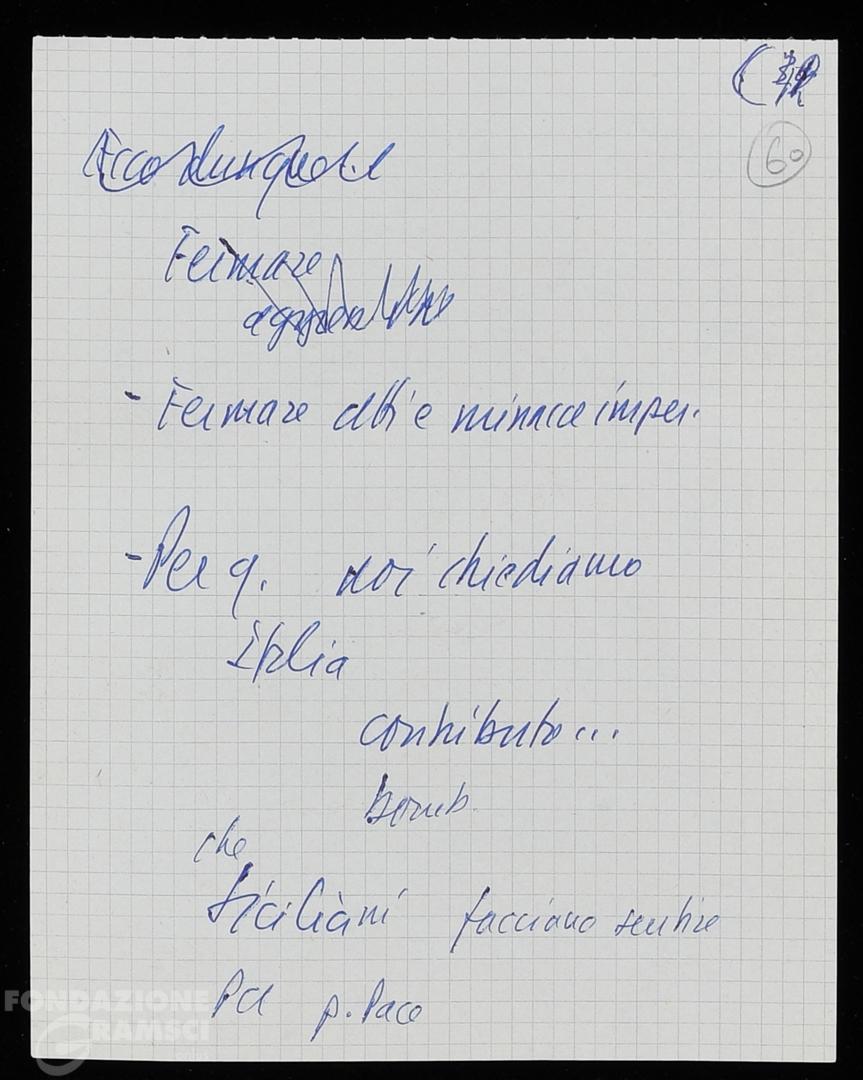 60
Ecco dunque
Fermare
- Fermare atti e minacce imper.
- Per q. noi chiediamo
Italia
contributo...
bomb.
che
siciliani facciano sentire
Pci p. Pace
FONDAZIONE
GRAMSCI